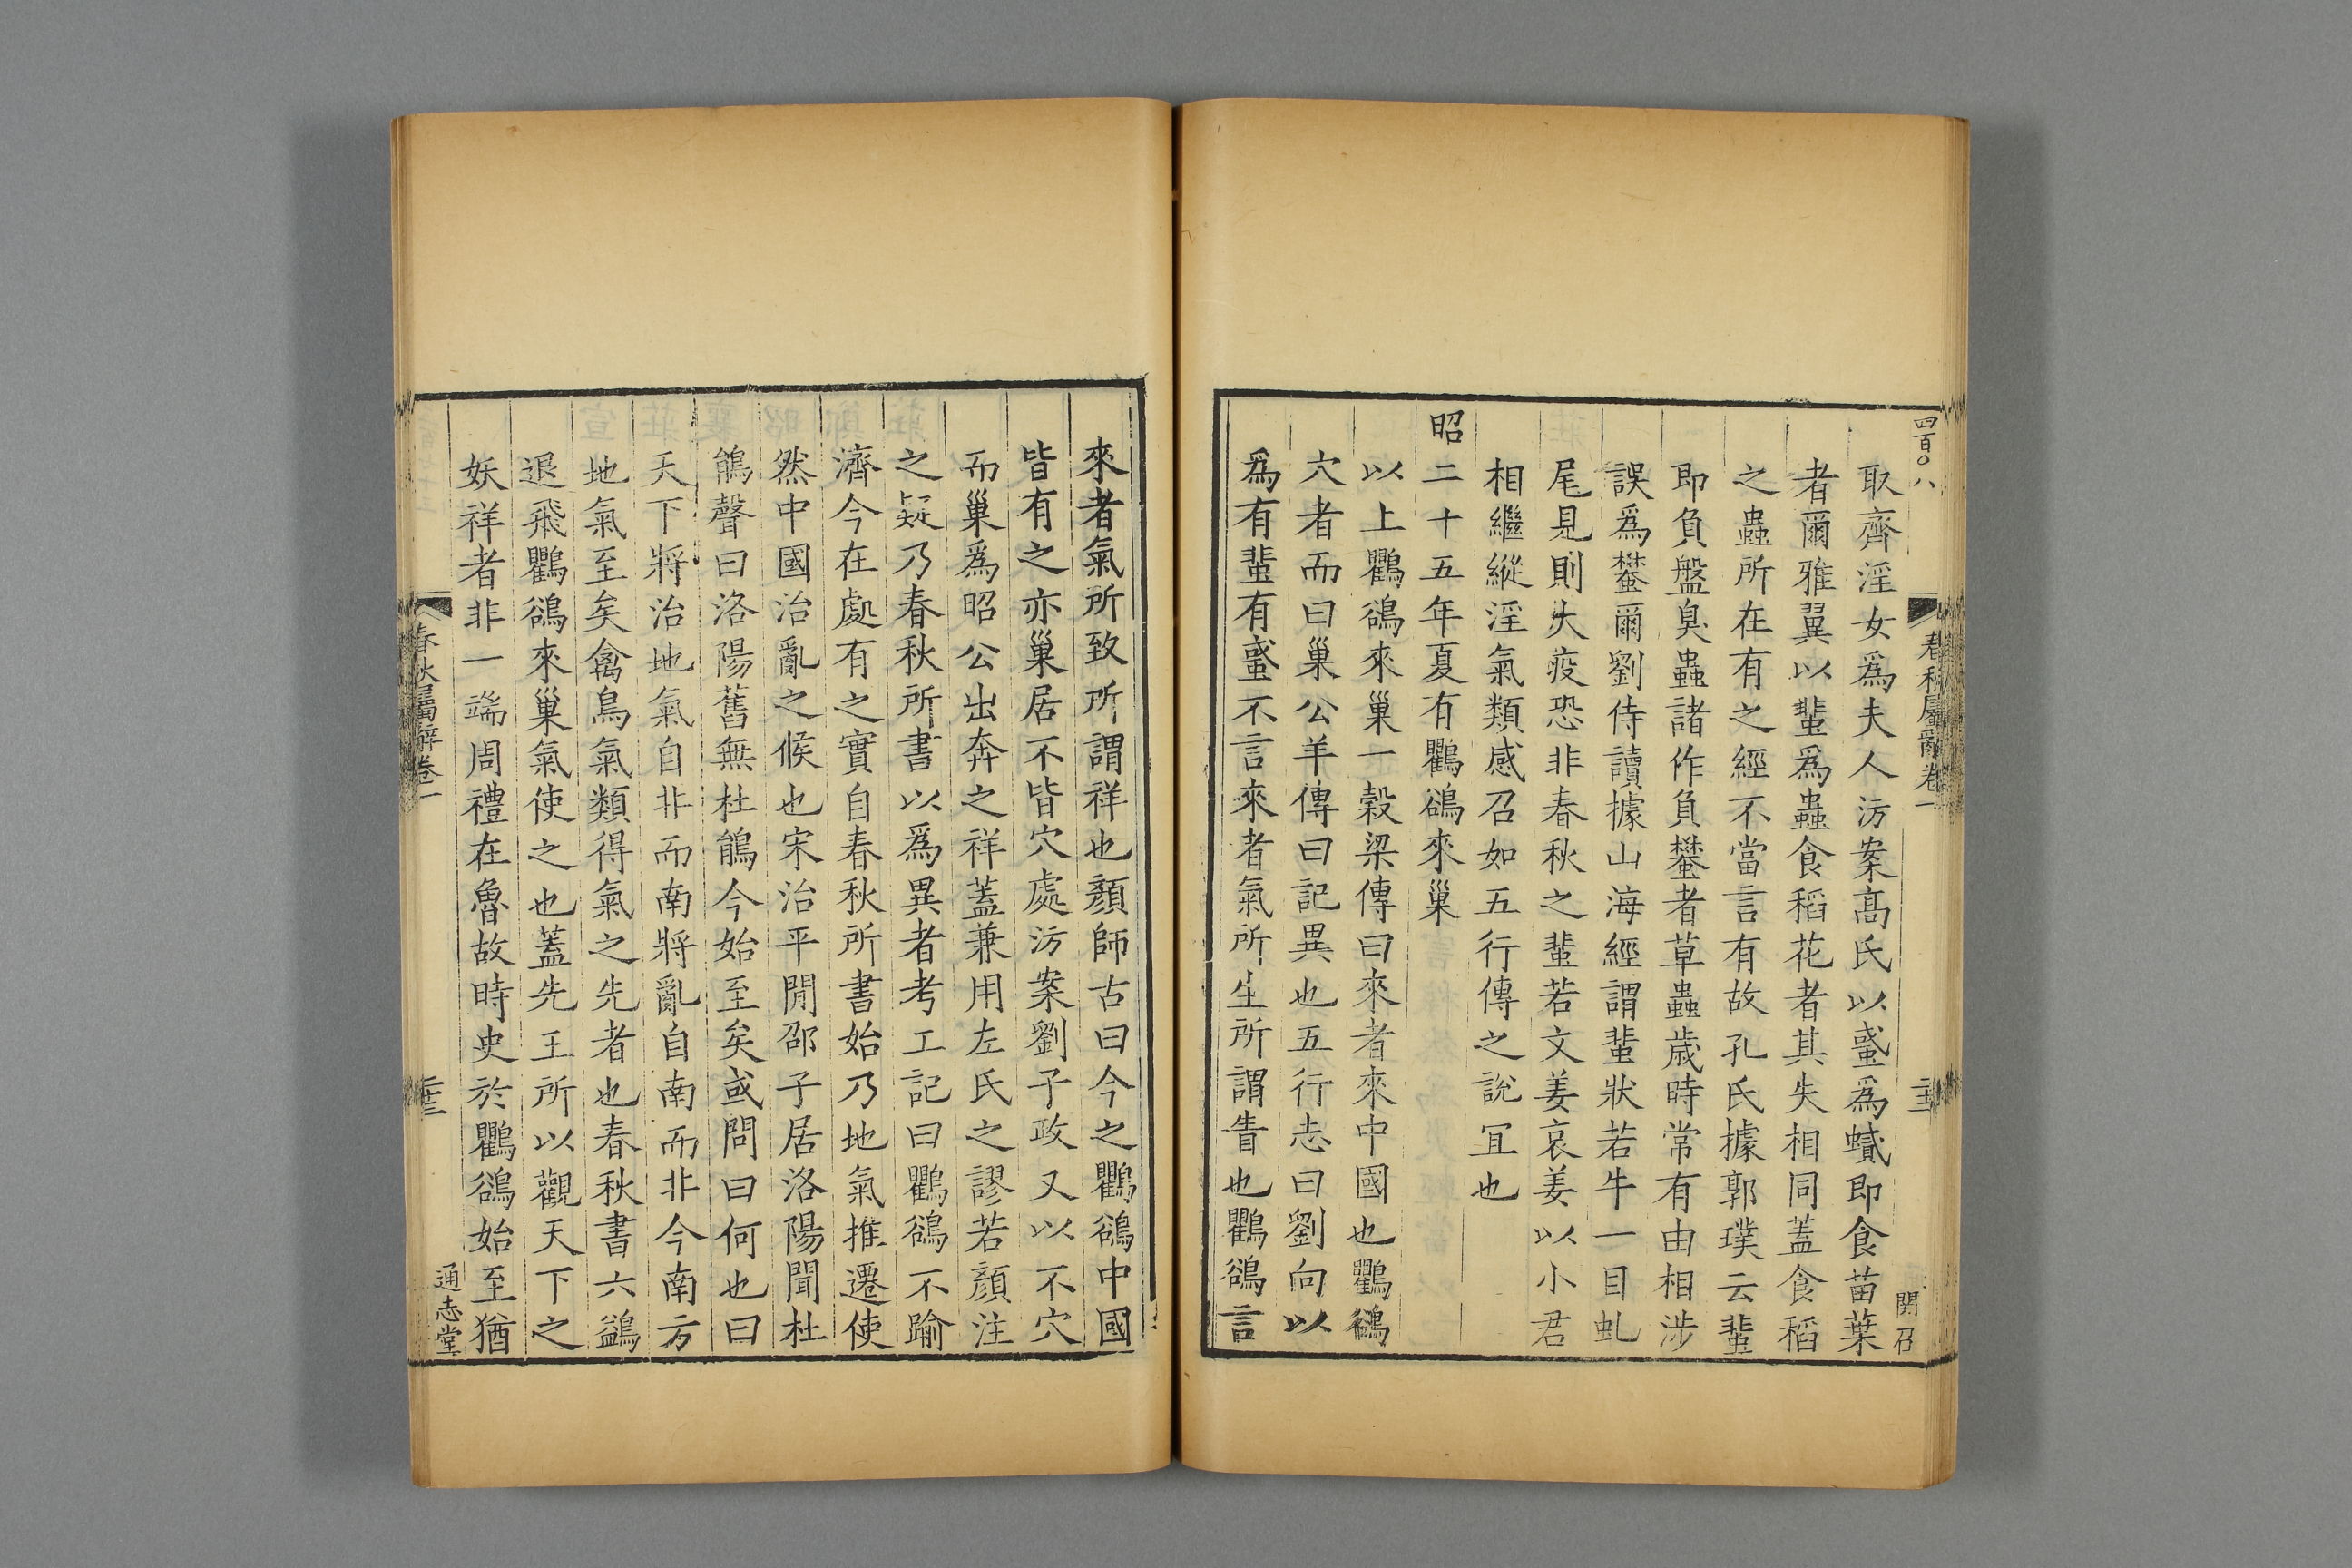 四百〇八
春秋屬辭卷一
關召
取齊淫女爲夫人汸案高氏以蜚爲蠈即食苗葉
者爾雅翼以蜚爲蟲食稻花者其失相同蓋食稻
之蟲所在有之經不當言有故孔氏據郭璞云蜚
即負盤臭蟲諸作負蠜者草蟲歲時常有由相涉
誤爲蠜爾劉侍讀據山海經謂蜚狀若牛一目虬
尾見則大疫恐非春秋之蜚若文姜哀姜以小君
相繼縱淫氣類感召如五行傳之說宜也
昭二十五年夏有鸜鵒來巢
以上鸜鵒來巢一穀梁傳曰來者來中國也鸜鵒
穴者而曰巢公羊傳曰記異也五行志曰劉向以
爲有蜚有蜮不言來者氣所生所謂眚也鸜鵒言
來者氣所致所謂祥也顏師古曰今之鸜鵒中國
皆有之亦巢居不皆穴處汸案劉子政又以不穴
而巢爲昭公出奔之祥蓋兼用左氏之謬若顏注
之疑乃春秋所書以爲異者考工記曰鸜鵒不踰
濟今在處有之實自春秋所書始乃地氣推遷使
然中國治亂之候也宋治平閒邵子居洛陽聞杜
鵑聲曰洛陽舊無杜鵑今始至矣或問曰何也曰
天下將治地氣自北而南將亂自南而北今南方
地氣至矣禽鳥氣類得氣之先者也春秋書六鷁
退飛鸜鵒來巢氣使之也蓋先王所以觀天下之
妖祥者非一端周禮在魯故時史於鸜鵒始至猶
春秋屬辭卷一
通志堂